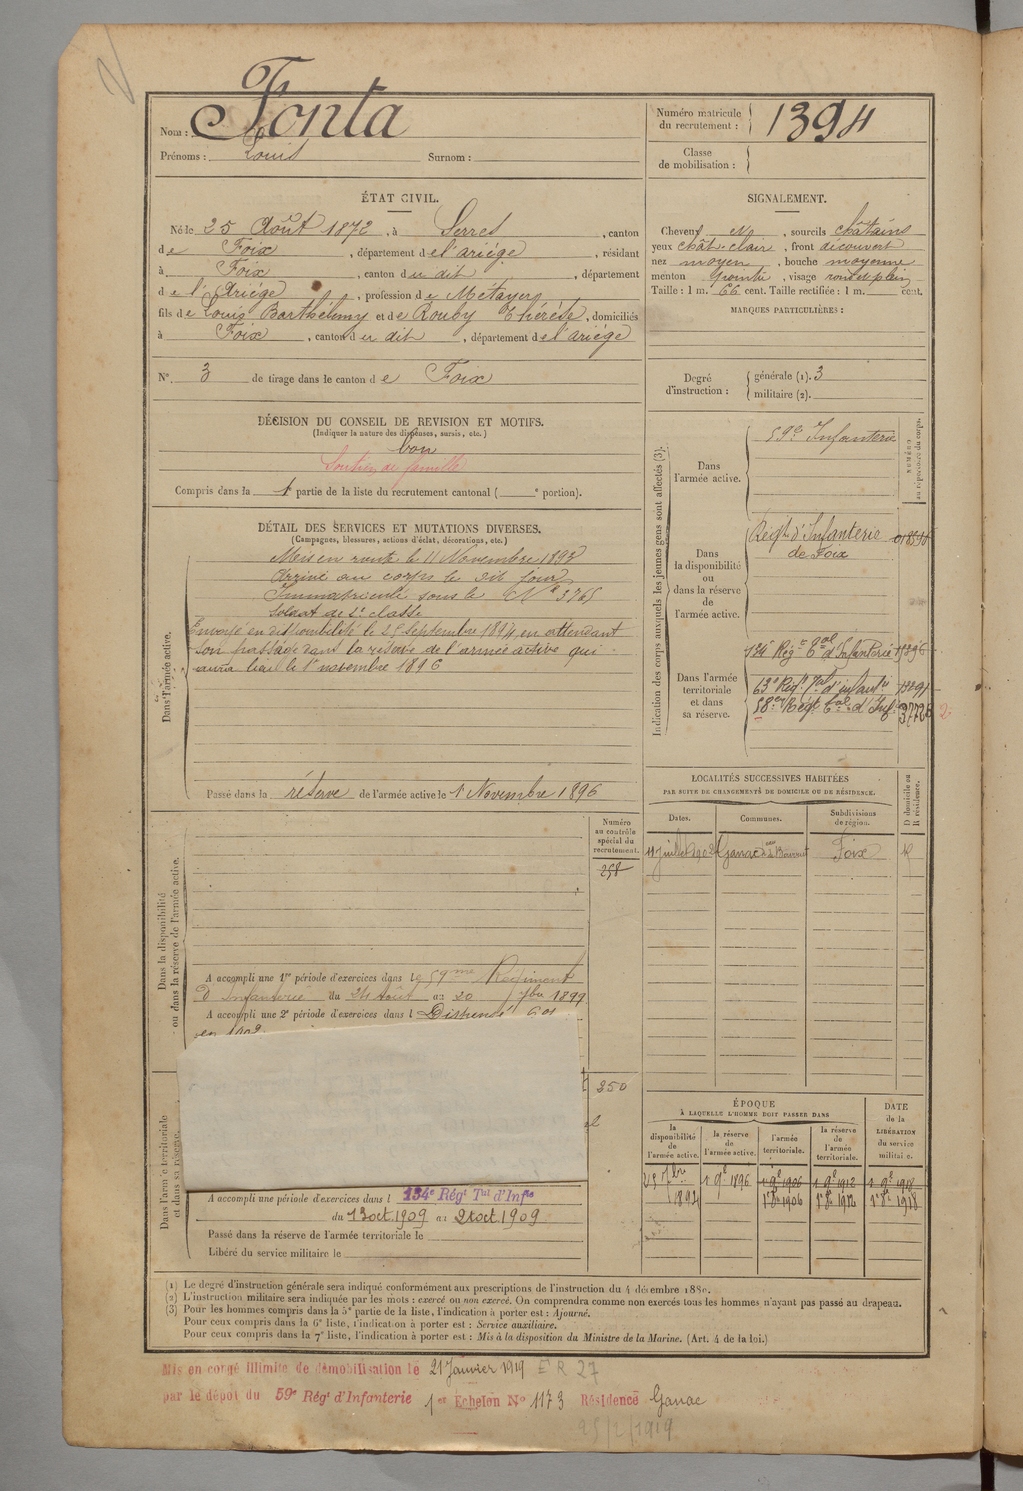 Nom : Fonta
Prénoms : Louis Surnom :
Numéro matricule
du recrutement : 1394
Classe
de mobilisation :
ÉTAT CIVIL.
Né le 25 Août 1872, à Serres, canton
de Foix, département de l'ariége, résidant
à Foix, canton du dit, département
de l'Ariége, profession de Métayer
fils de Louis Barthélemy et de Rouby Thérèse, domiciliés
à Foix, canton du dit, département de l'ariége
N° 3 de tirage dans le canton de Foix
SIGNALEMENT.
Cheveux No, sourcils châtains
yeux chât. clair, front découvert
nez moyen, bouche moyenne
menton pointu, visage rond et plein
Taille : 1 m. 66 cent. Taille rectifiée : 1 m. cent.
MARQUES PARTICULIÈRES :
Degré
d'instruction :
générale (1). 3
militaire (2).
DÉCISION DU CONSEIL DE REVISION ET MOTIFS.
(Indiquer la nature des dispenses, sursis, etc.)
bon
Soutien de famille
Compris dans la 1 partie de la liste du recrutement cantonal ( e portion).
DÉTAIL DES SERVICES ET MUTATIONS DIVERSES.
(Campagnes, blessures, actions d'éclat, décorations, etc.)
Dans l'armée active.
Mis en route le 11 Novembre 1893
Arrivé au corps le dit jour
Immatriculé sous le N° 3765
Soldat de 2e classe
Envoyé en disponibilité le 25 Septembre 1894 en attendant
son passage dans la réserve de l'armée active qui
aura lieu le 1er novembre 1896
Passé dans la réserve de l'armée active le 1 Novembre 1896
Indication des corps auxquels les jeunes gens sont affectés (3).
NUMÉRO
au répertoire du corps.
Dans
l'armée active.
59e Infanterie
Dans
la disponibilité
ou
dans la réserve
de
l'armée active.
Régt d'Infanterie
de Foix
Dans l'armée
territoriale
et dans
sa réserve.
134e Régt Tal d'Infanterie
63e Régt Tal d'infantie
58e Régt Tal d'Inf.
LOCALITÉS SUCCESSIVES HABITÉES
PAR SUITE DE CHANGEMENTS DE DOMICILE OU DE RÉSIDENCE.
Dates. Communes. Subdivisions
de région.
D domicile ou
R résidence.
11 Juillet 1902 Ganac Foix R
Dans la disponibilité
ou dans la réserve de l'armée active.
Numéro
au contrôle
spécial du
recrutement.
258
A accompli une 1re période d'exercices dans le 59me Régiment
d'Infanterie du 24 Août au 20 7bre 1899
A accompli une 2e période d'exercices dans l Dispensé
350
Dans l'armée territoriale
et dans sa réserve.
A accompli une période d'exercices dans l 134e Régt Tal d'Infie
du 13 oct. 1909 au 21 oct 1909
Passé dans la réserve de l'armée territoriale le
Libéré du service militaire le
ÉPOQUE
À LAQUELLE L'HOMME DOIT PASSER DANS
DATE
de la
LIBÉRATION
du service
militaire.
la
disponibilité
de
l'armée active.
la réserve
de
l'armée active.
l'armée
territoriale.
la réserve
de
l'armée
territoriale.
25 7bre 1 9e 1896 1 9e 1906 1 9e 1912 1 9e 1918
1894 1er 8e 1906 1er 8e 1912 1er 8e 1918
(1) Le degré d'instruction générale sera indiqué conformément aux prescriptions de l'instruction du 4 décembre 1889.
(2) L'instruction militaire sera indiquée par les mots : exercé ou non exercé. On comprendra comme non exercés tous les hommes n'ayant pas passé au drapeau.
(3) Pour les hommes compris dans la 5e partie de la liste, l'indication à porter est : Ajourné.
Pour ceux compris dans la 6e liste, l'indication à porter est : Service auxiliaire.
Pour ceux compris dans la 7e liste, l'indication à porter est : Mis à la disposition du Ministre de la Marine. (Art. 4 de la loi.)
Mis en congé illimité de démobilisation le 21 Janvier 1919 E R 27
par le dépôt du 59e Régt d'Infanterie 1er Echelon N° 1173 Résidence Ganac
25/2/1919